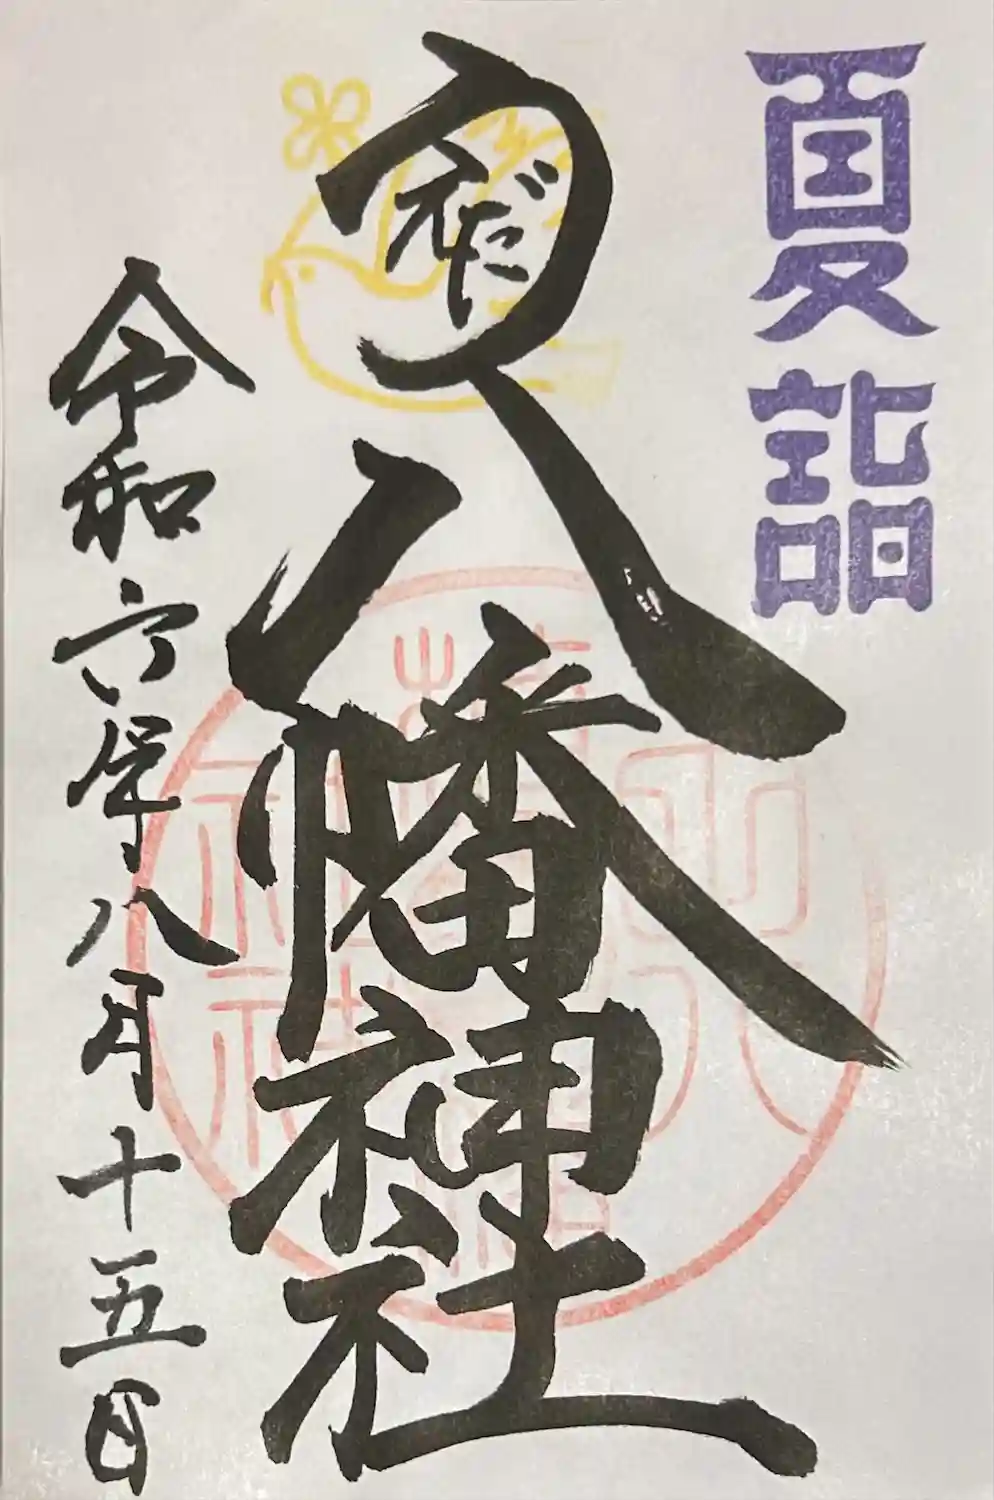 夏詣
えだ
八幡神社
令和六年八月十五日